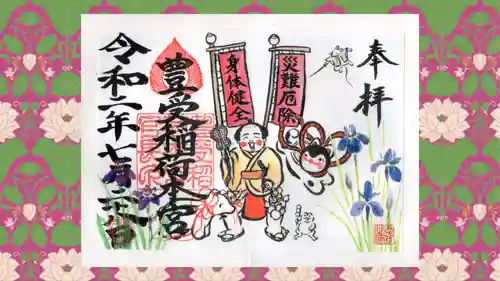 奉拝
災難厄除
身体健全
豊受稲荷本宮
令和二年七月